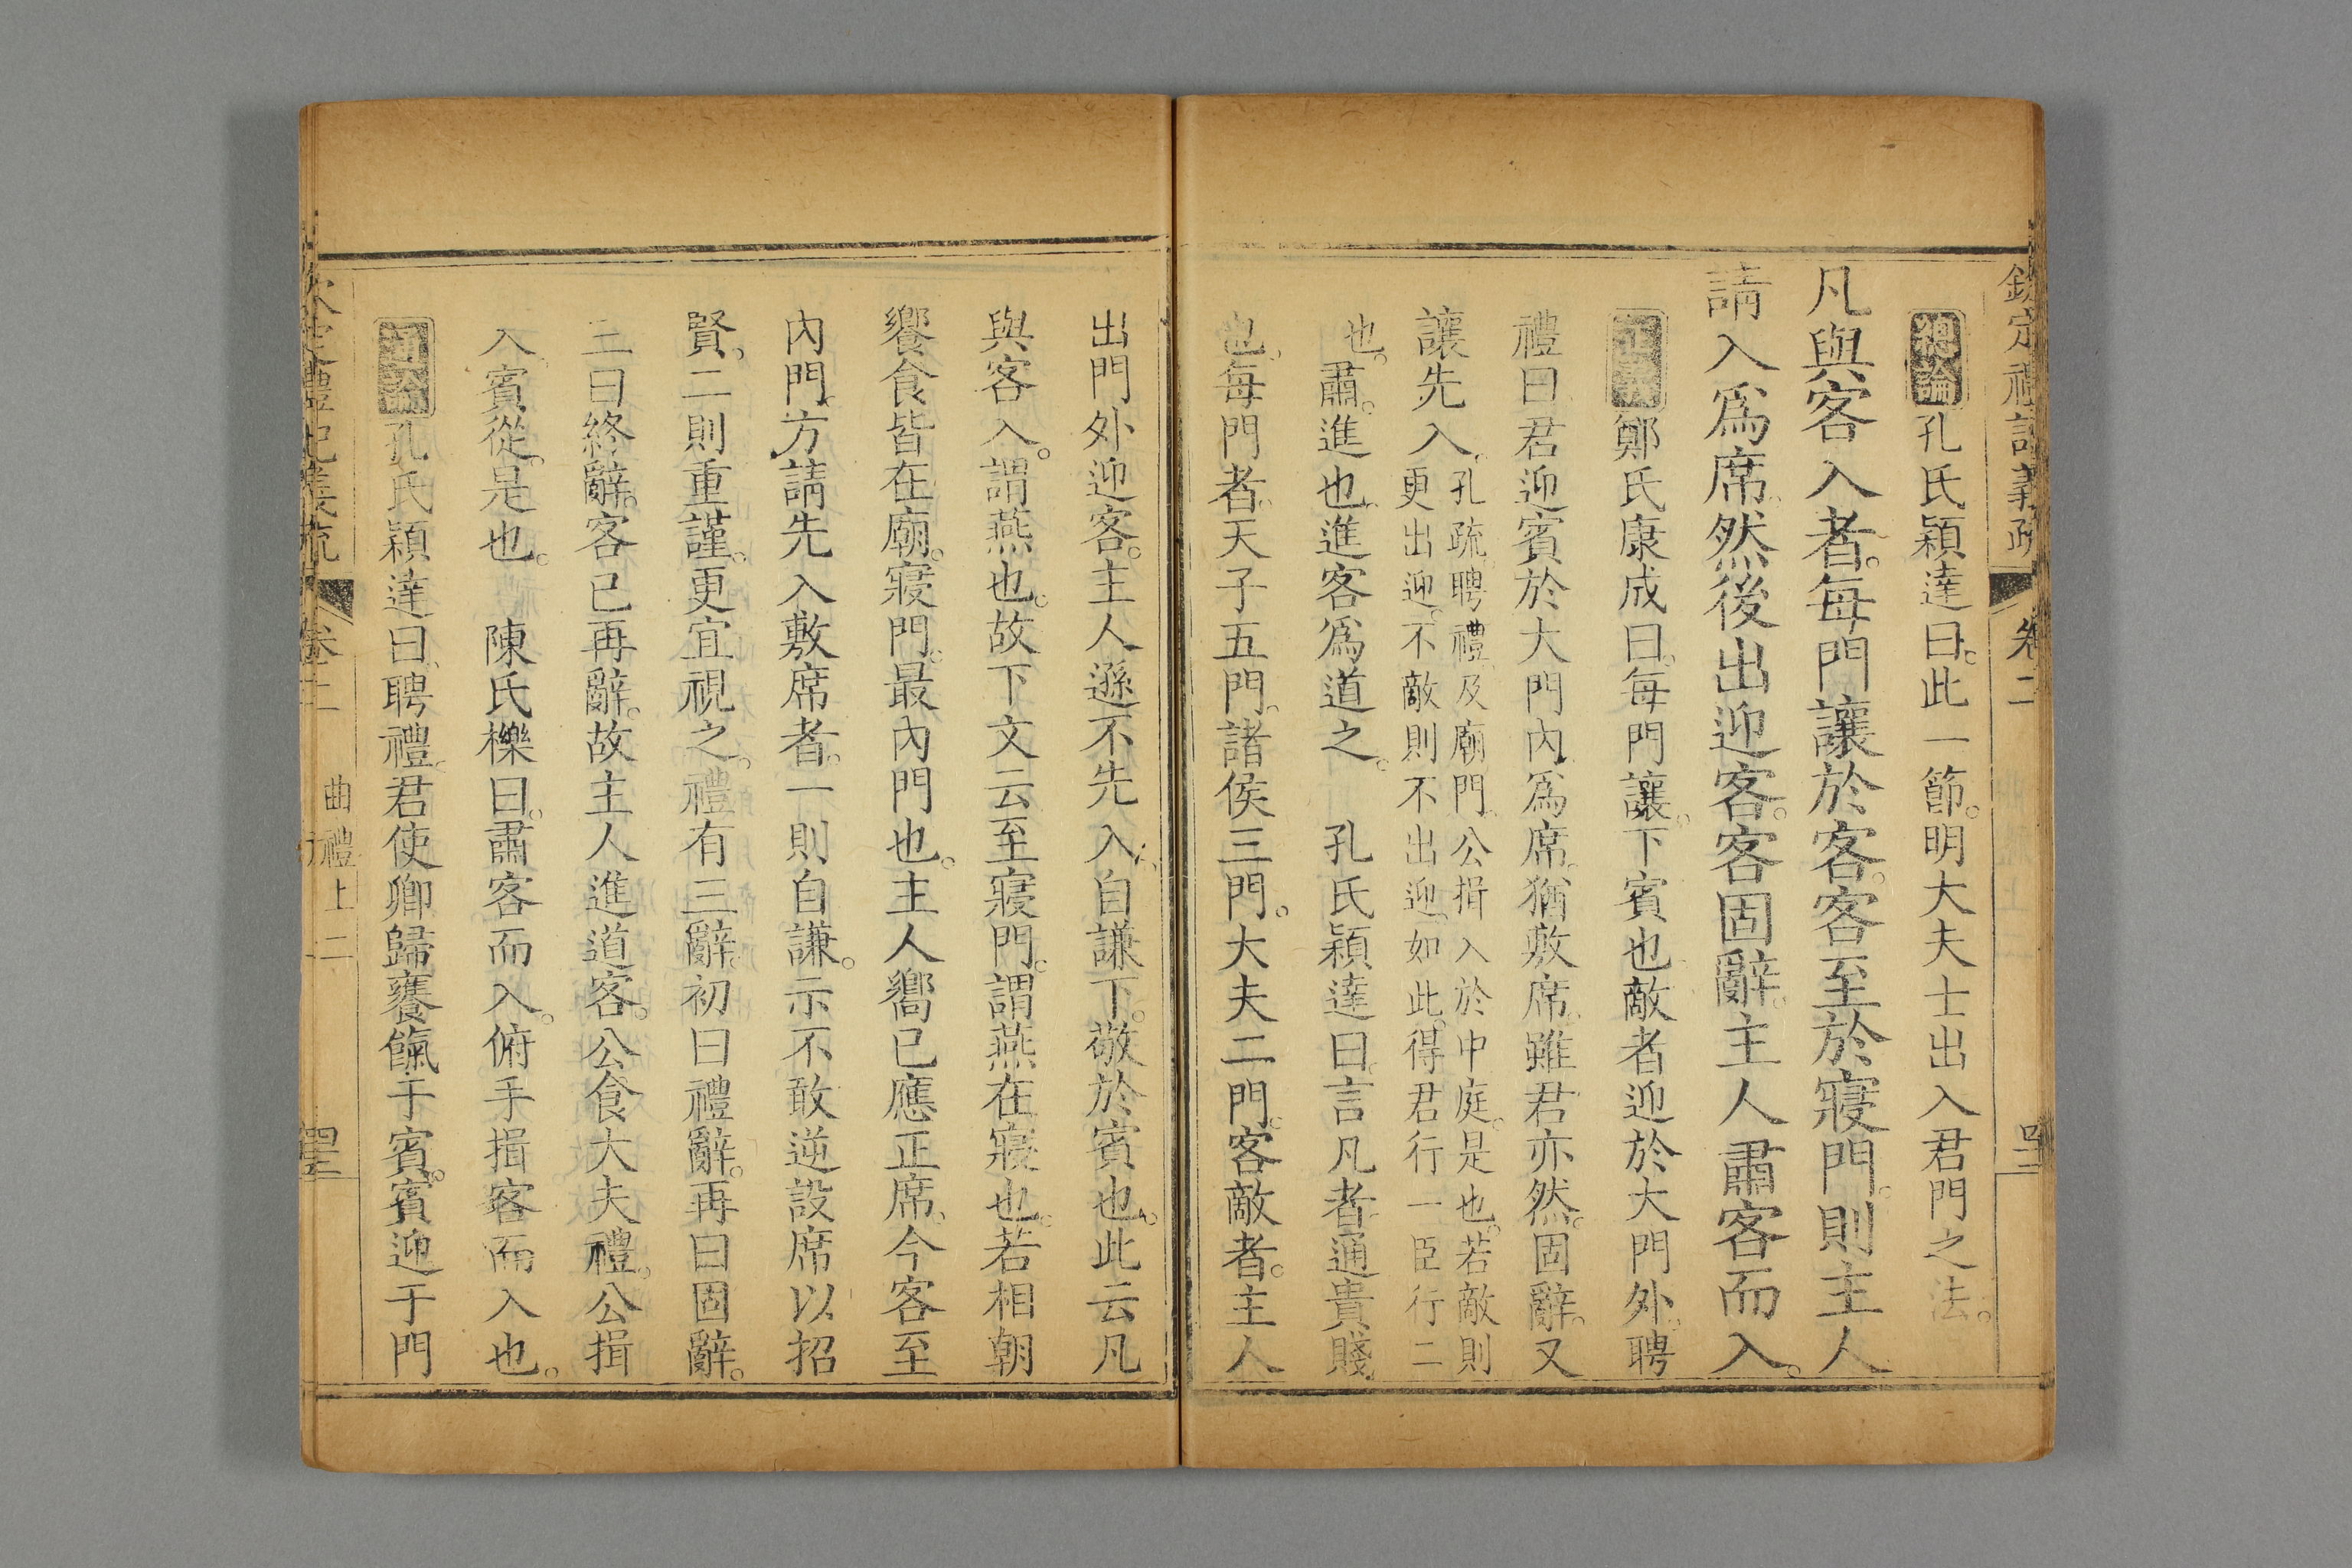 總論孔氏穎達曰。此一節。明大夫士出入君門之法。
凡與客入者。每門讓於客。客至於寢門。則主人
請入爲席。然後出迎客。客固辭。主人肅客而入。
正義鄭氏康成曰。每門讓。下賓也。敵者迎於大門外。聘
禮曰君迎賓於大門內。爲席。猶敷席。雖君亦然。固辭。又
讓先入。孔疏聘禮。及廟門。公揖入於中庭。是也。若敵則
更出迎。不敵則不出迎。如此。得君行一臣行二
也。肅。進也。進客爲道之。 孔氏穎達曰。言凡者。通貴賤
也。每門者。天子五門。諸侯三門。大夫二門。客敵者。主人
出門外迎客。主人遜不先入。自謙下。敬於賓也。此云凡
與客入。謂燕也。故下文云至寢門。謂燕在寢也。若相朝
饗食皆在廟。寢門。最內門也。主人嚮已應正席。今客至
內門。方請先入敷席者。一則自謙。示不敢逆設席以招
賢。二則重謹。更宜視之。禮有三辭。初曰禮辭。再曰固辭。
三曰終辭。客已再辭。故主人進道客。公食大夫禮。公揖
入賓從。是也。 陳氏櫟曰。肅客而入。俯手揖客而入也。
通論孔氏穎達曰。聘禮。君使卿歸饔餼于賓。賓迎于門
欽定禮記義疏 卷二 曲禮上二